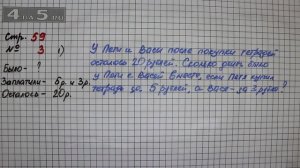 4 на 5.ru
Стр. 59
№ 3 1)
Было - ?
Заплатили - 5р. и 3р.
Осталось - 20р.
У Пети и Васи после покупки тетрадей
осталось 20 рублей. Сколько денег было
у Пети с Васей вместе, если Петя купил
тетрадь за 5 рублей, а Вася - за 3 рубля?